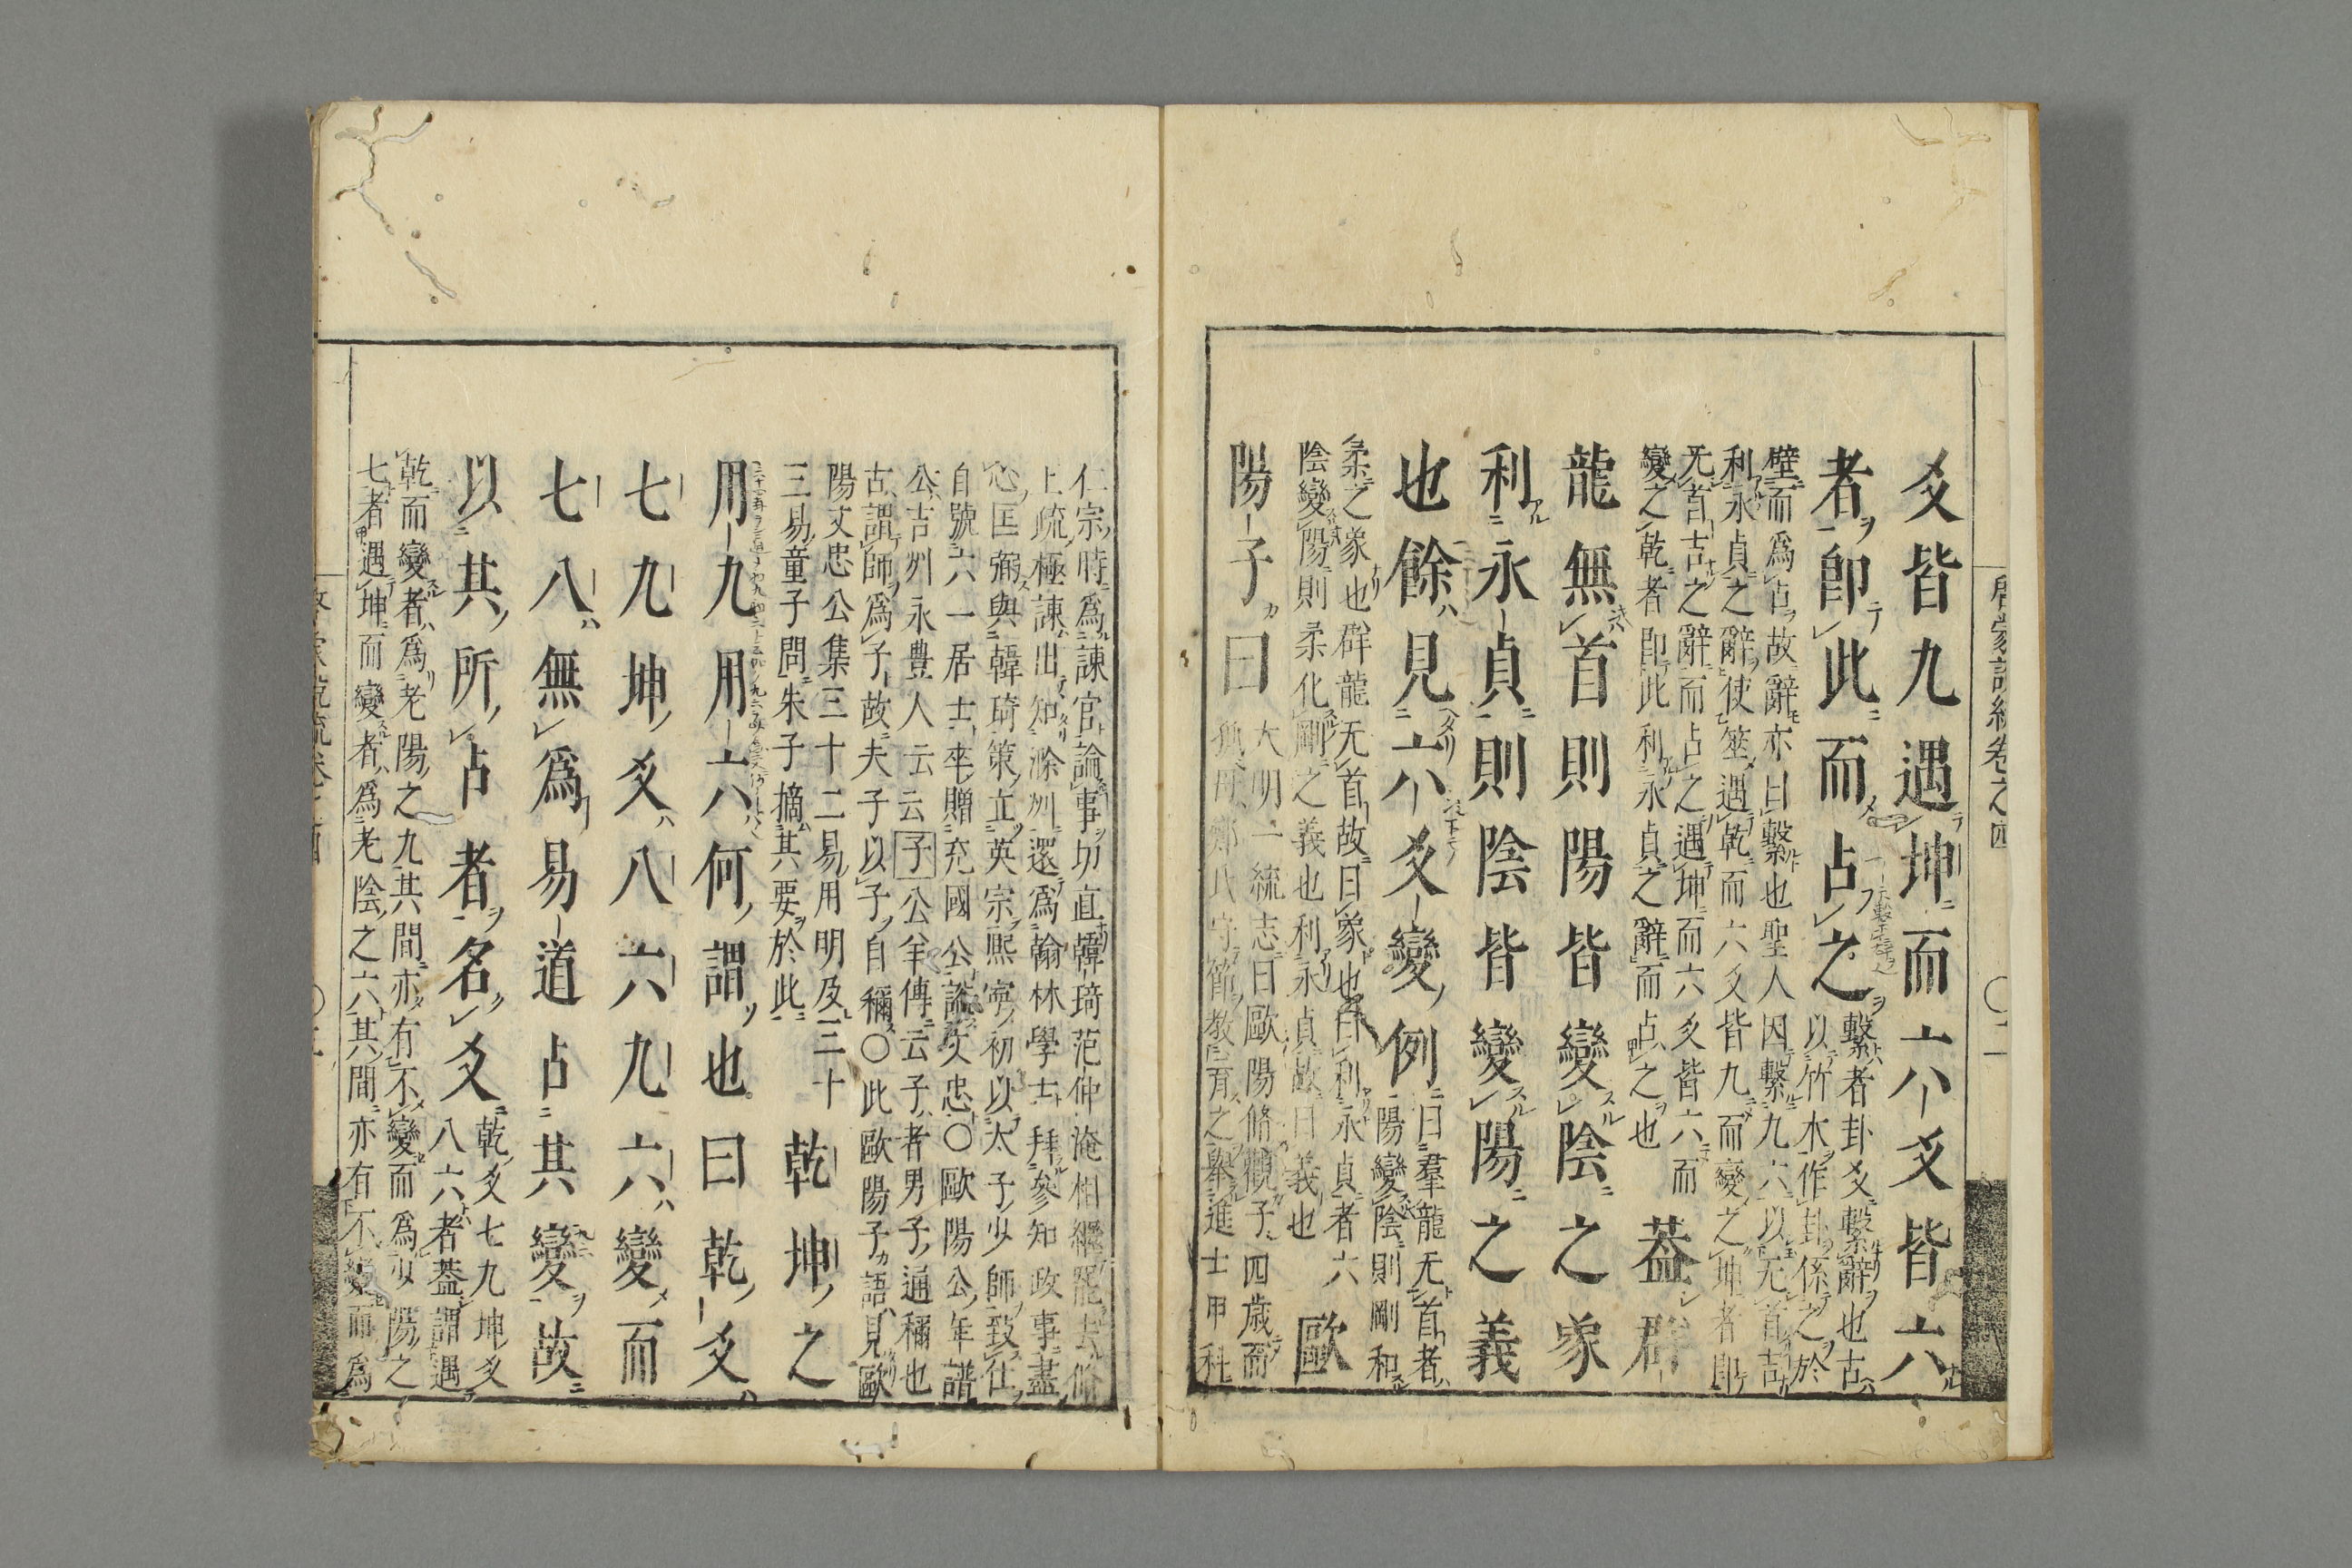 卷之四
二
爻皆九遇坤而六爻皆六
者即此而占之
繫者卦爻繫辭也古
以竹木作卦係之於
壁而爲占故辭亦曰繫也聖人因繫九六以无首吉
利永貞之辭使筮遇乾而六爻皆九而變之坤者即
无首吉之辭而占之遇坤而六爻皆六而
變之乾者即此利永貞之辭而占之也
葢群
龍無首則陽皆變陰之象
利永貞則陰皆變陽之義
也餘見六爻變例
曰羣龍无首者
陽變陰則剛和
柔之象也群龍无首故曰象也曰利永貞者六
陰變陽則柔化剛之義也利永貞故曰義也
歐
陽子曰
大明一統志曰歐陽脩觀子四歲而
孤母鄭氏守節教育之舉進士甲科
仁宗時爲諫官論事切直韓琦范仲淹相繼罷去脩
上疏極諫出知滁州還爲翰林學士拜參知政事盡
心匡弼與韓琦策立英宗熙寧初以太子少師致仕
自號六一居士卒贈兖國公諡文忠○歐陽公年譜
公吉州永豊人云云子公羊傳云子者男子通稱也
古謂師爲子故夫子以子自稱○此歐陽子語見歐
陽文忠公集三十二易用明及三十
三易童子問朱子摘其要於此
乾坤之
用九用六何謂也曰乾爻
七九坤爻八六九六變而
七八無爲易道占其變故
以其所占者名爻
乾爻七九坤爻
八六者葢謂遇
乾而變者爲老陽之九其間亦有不變而爲少陽之
七者遇坤而變者爲老陰之六其間亦有不變而爲